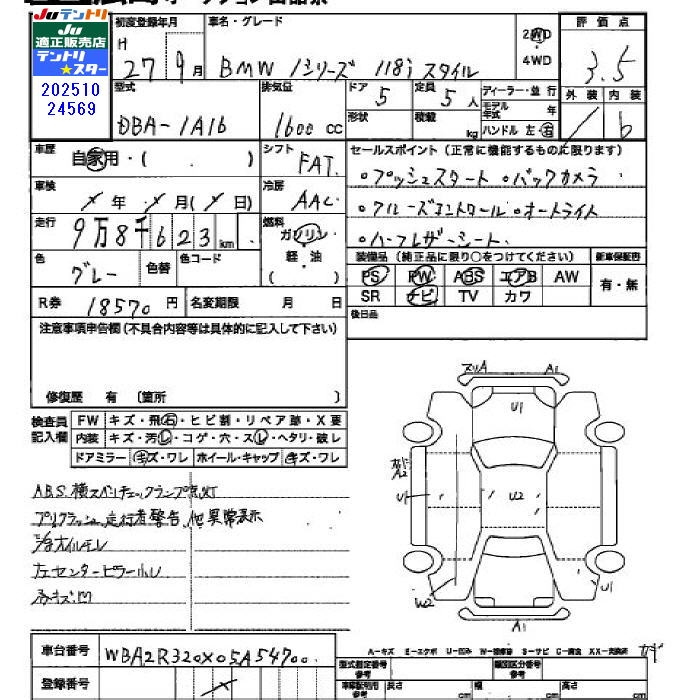 JUテントリ
JU
適正販売店
テントリ
★スター
202510
24569
初度登録年月
H 27 9 月
車名・グレード
BMW 1シリーズ 118i スタイル
2WD
4WD
評価点
3.5
型式
DBA-1A16
排気量
1600 cc
ドア
5
形状
定員
5 人
積載
kg
ディーラー・並行
モデル年式
年
ハンドル 左・右
外装
内装
b
車歴
自家用・( . )
シフト
FAT
セールスポイント (正常に機能するものに限ります)
○プッシュスタート ○バックカメラ
○クルーズコントロール ○オートライト
○ハーフレザーシート
車検
年 月( 日)
冷房
AAC
走行
9万8千623 km
燃料
ガソリン
軽・油
( )
色
グレー
色替
色コード
装備品 (純正品に限り○をつけてください)
新車保証書
PS PW ABS エアB AW
SR ナビ TV カワ
有・無
R券 18570 円
名変期限 月 日
後日品
注意事項申告欄 (不具合内容等は具体的に記入して下さい)
修復歴 有 〔箇所 〕
検査員
記入欄
FW キズ・飛石・ヒビ割・リペア跡・X要
内装 キズ・汚レ・コゲ・穴・スレ・ヘタリ・破レ
ドアミラー キズ・ワレ ホイール・キャップ キズ・ワレ
ABS. 横スベリチェックランプ点灯
プリクラッシュ、走行者警告、他異常表示
オイルモレ
左センターピラー小U
小キズ凹
スリA
A1
U1
A2
U1
U2
W2
U1
A1
車台番号
WBA2R320X05A54700
登録番号
A-キズ E-エクボ U-凹み W-補修跡 S-サビ C-腐食 XX-交換済
型式指定番号
参考
類別区分番号
参考
車庫証明用
参考
長さ
cm
幅
cm
高さ
cm